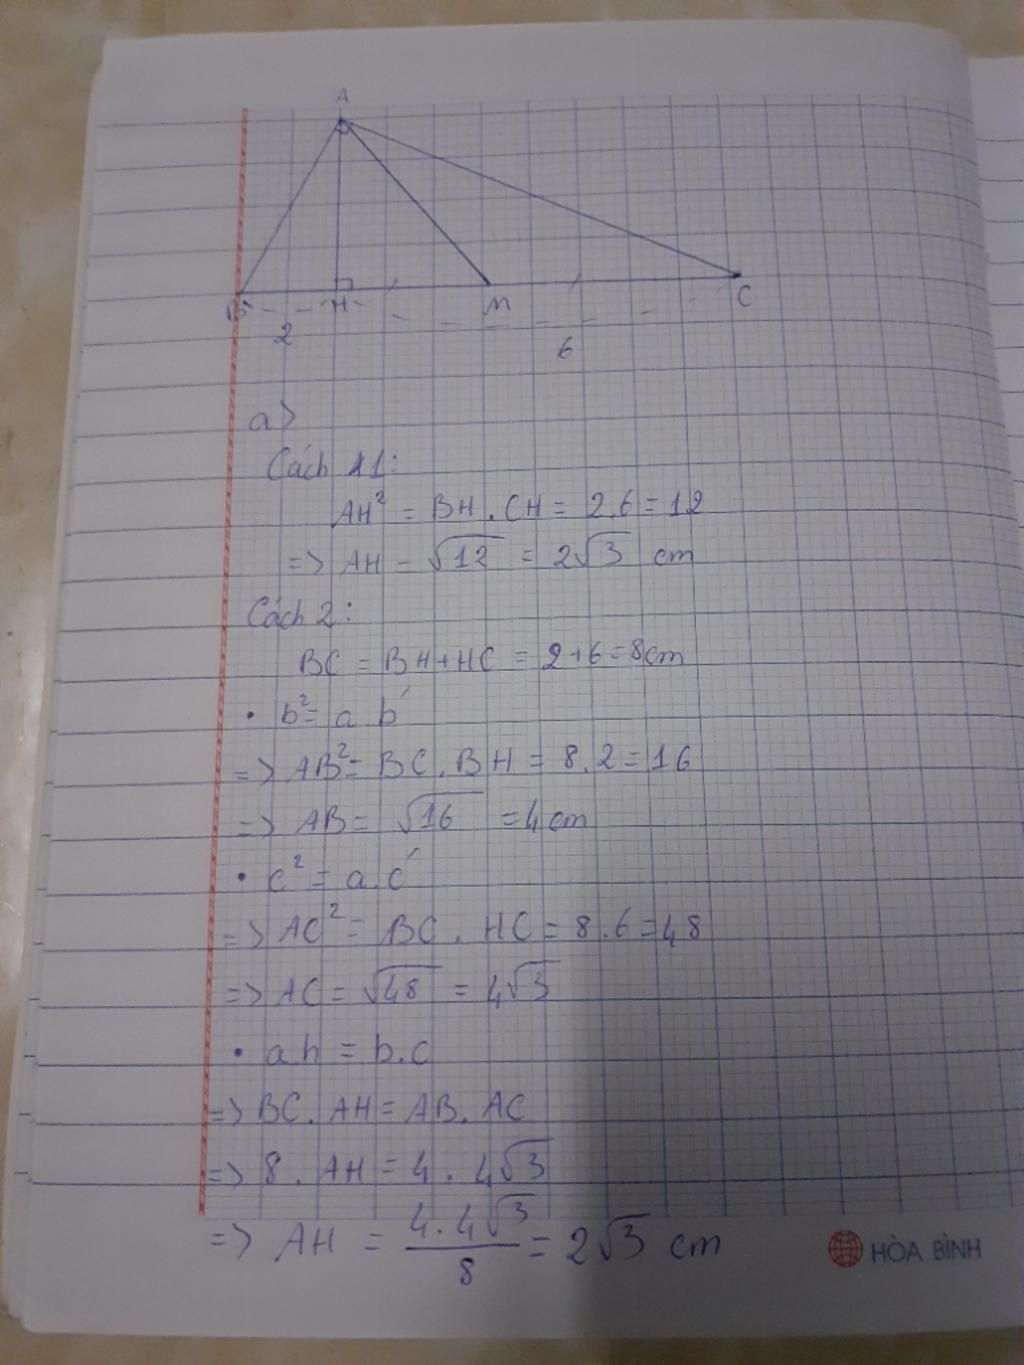 A
B H M C
2
6
a>
Cách 1:
AH² = BH . CH = 2.6 = 12
=> AH = √12 = 2√3 cm
Cách 2:
BC = BH + HC = 2 + 6 = 8cm
• b² = a b'
=> AB² = BC . BH = 8.2 = 16
=> AB = √16 = 4 cm
• c² = a.c'
=> AC² = BC . HC = 8.6 = 48
=> AC = √48 = 4√3
• a h = b.c
=> BC . AH = AB . AC
=> 8 . AH = 4 . 4√3
=> AH = 4.4√3/8 = 2√3 cm
HÒA BÌNH